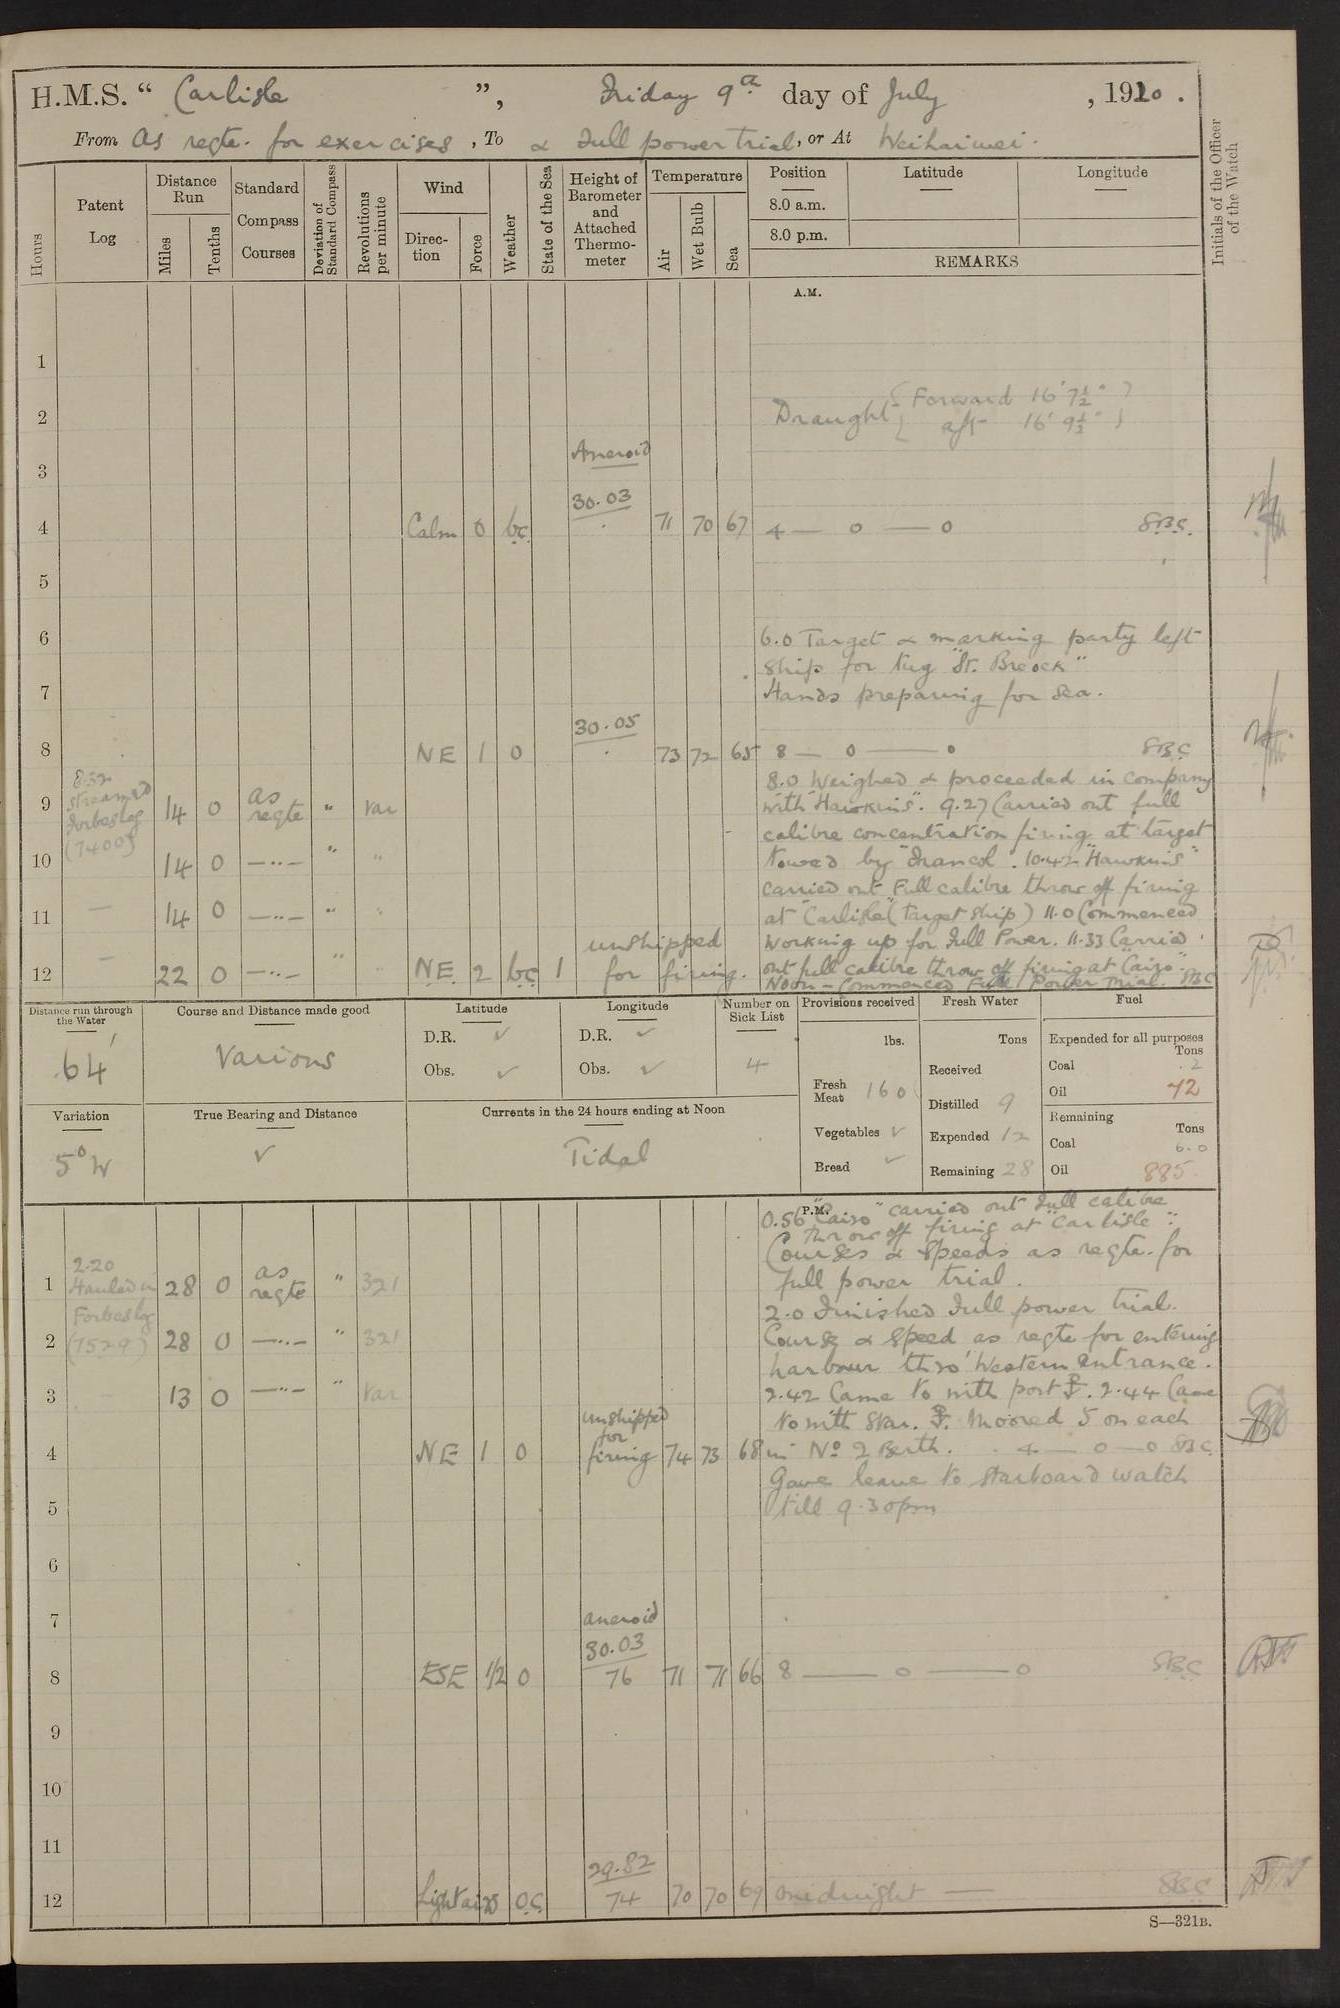 H.M.S. “ Carlisle ”, Friday 9th day of July , 1920 .
From As reqte. for exercises , To & Full power trial , or At Weihaiwei .
Initials of the Officer of the Watch
Hours
Patent Log
Distance Run
Miles
Tenths
Standard Compass Courses
Deviation of Standard Compass
Revolutions per minute
Wind
Direction
Force
Weather
State of the Sea
Height of Barometer and Attached Thermometer
Temperature
Air
Wet Bulb
Sea
Position
8.0 a.m.
8.0 p.m.
Latitude
Longitude
REMARKS
A.M.
1
2 Draught { Forward 16' 7½"
aft 16' 9⅓" }
3 Aneroid
4 Calm 0 b.c. 30.03 71 70 67 4 — 0 — 0 S.B.C.
5
6 6.0 Target & marking party left
ship for tug "St. Breock"
7 Hands preparing for sea.
8 NE 1 0 30.05 73 72 65 8 — 0 — 0 S.B.C
8.32 streamed Forbes log (7400)
9 14 0 as reqte " Var
8.0 Weighed & proceeded in company
with "Hawkins". 9.27 Carried out full
calibre concentration firing at target
10 14 0 —"— " "
towed by "Francol". 10.42 "Hawkins"
carried out Full calibre throw off firing
11 — 14 0 —"— " "
at "Carlisle" (target ship) 11.0 Commenced
working up for Full Power. 11.33 Carried
12 — 22 0 —"— " " NE. 2 b.c 1 unshipped for firing.
out full calibre throw off firing at "Cairo".
Noon - Commenced Full Power Trial. SBC
Distance run through the Water
64'
Course and Distance made good
Various
Latitude
D.R. ✓
Obs. ✓
Longitude
D.R. ✓
Obs. ✓
Number on Sick List
4
Provisions received
lbs.
Fresh Meat 160
Vegetables ✓
Bread ✓
Fresh Water
Tons
Received
Distilled 9
Expended 12
Remaining 28
Fuel
Expended for all purposes
Tons
Coal .2
Oil 42
Remaining
Tons
Coal 6.0
Oil 885
Variation
5° W
True Bearing and Distance
✓
Currents in the 24 hours ending at Noon
Tidal
P.M.
0.56 "Cairo" carried out full calibre
throw off firing at "Carlisle".
Courses & Speeds as reqte. for
1 28 0 as reqte " 321
2.20 Hauled in Forbes log (7529)
full power trial.
2.0 Finished Full power trial.
2 28 0 —"— " 321
Course & Speed as reqte for entering
harbour thro' Western entrance.
3 — 13 0 —"— " Var
2.42 Came to with port ⚓. 2.44 Came
to with Star. ⚓. Moored 5 on each
4 NE 1 0 unshipped for firing 74 73 68
in No 2 Berth. 4 — 0 — 0 S.B.C.
Gave leave to starboard watch
5 till 9.30pm
6
7 aneroid
8 ESE 1/2 0 30.03 76 71 71 66 8 — 0 — 0 S.B.C
9
10
11
12 Light airs o.c. 29.82 74 70 70 69 midnight — S.B.C
S—321B.